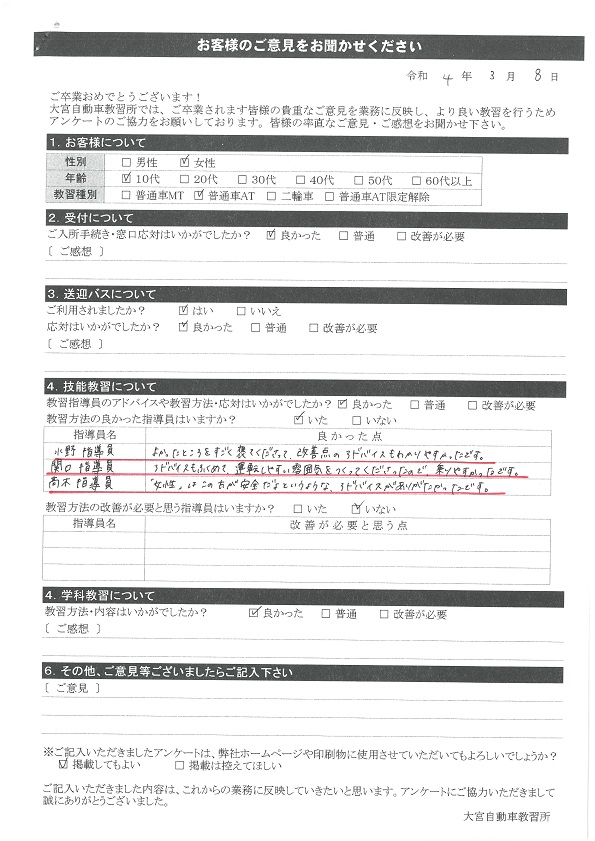 お客様のご意見をお聞かせください
令和 4 年 3 月 8 日
ご卒業おめでとうございます！
大宮自動車教習所では、ご卒業されます皆様の貴重なご意見を業務に反映し、より良い教習を行うため
アンケートのご協力をお願いしております。皆様の率直なご意見・ご感想をお聞かせ下さい。
1. お客様について
性別 □ 男性 ☑ 女性
年齢 ☑ 10代 □ 20代 □ 30代 □ 40代 □ 50代 □ 60代以上
教習種別 □ 普通車MT ☑ 普通車AT □ 二輪車 □ 普通車AT限定解除
2. 受付について
ご入所手続き・窓口応対はいかがでしたか？ ☑ 良かった □ 普通 □ 改善が必要
〔 ご感想 〕
3. 送迎バスについて
ご利用されましたか？ ☑ はい □ いいえ
応対はいかがでしたか？ ☑ 良かった □ 普通 □ 改善が必要
〔 ご感想 〕
4. 技能教習について
教習指導員のアドバイスや教習方法・応対はいかがでしたか？ ☑ 良かった □ 普通 □ 改善が必要
教習方法の良かった指導員はいますか？ ☑ いた □ いない
指導員名 良かった点
水野 指導員 よかったところをすごく褒てくださって、改善点のアドバイスもわかりやすかったです。
関口 指導員 アドバイスもふくめて、運転しやすい雰囲気をつくってくださったので 乗りやすかったです。
高木 指導員 "女性"はこの方が安全だよというような、アドバイスがありがたかったです。
教習方法の改善が必要と思う指導員はいますか？ □ いた ☑ いない
指導員名 改善が必要と思う点
4. 学科教習について
教習方法・内容はいかがでしたか？ ☑ 良かった □ 普通 □ 改善が必要
〔 ご感想 〕
6. その他、ご意見等ございましたらご記入下さい
〔 ご意見 〕
※ご記入いただきましたアンケートは、弊社ホームページや印刷物に使用させていただいてもよろしいでしょうか？
☑ 掲載してもよい □ 掲載は控えてほしい
ご記入いただきました内容は、これからの業務に反映していきたいと思います。アンケートにご協力いただきまして
誠にありがとうございました。
大宮自動車教習所